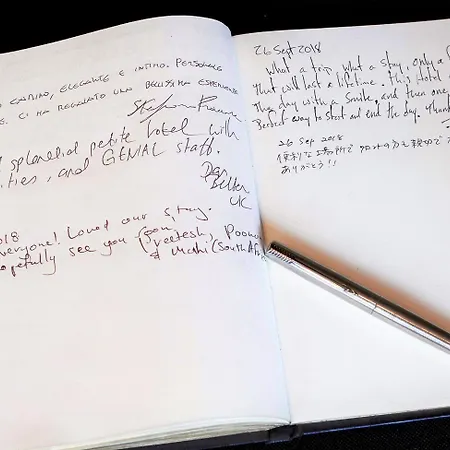 CARINO, ELEGANTE E INTIMO. PERSONALE
E. CI HA REGALATO UNA BELLISSIMA ESPERIENZA
splendid petite hotel with
ities, and GENIAL staff.
UK
018
everyone! Loved our stay.
hopefully see you soon,
& Mahi (South Afri
26 Sept 2018
What a trip, what a stay, only a f
that will last a lifetime. This hotel
The day with a smile, and then one
Perfect way to start and end the day. Thank
26 Sep 2018
便利な場所で フロントの方も親切で
ありがとう!!